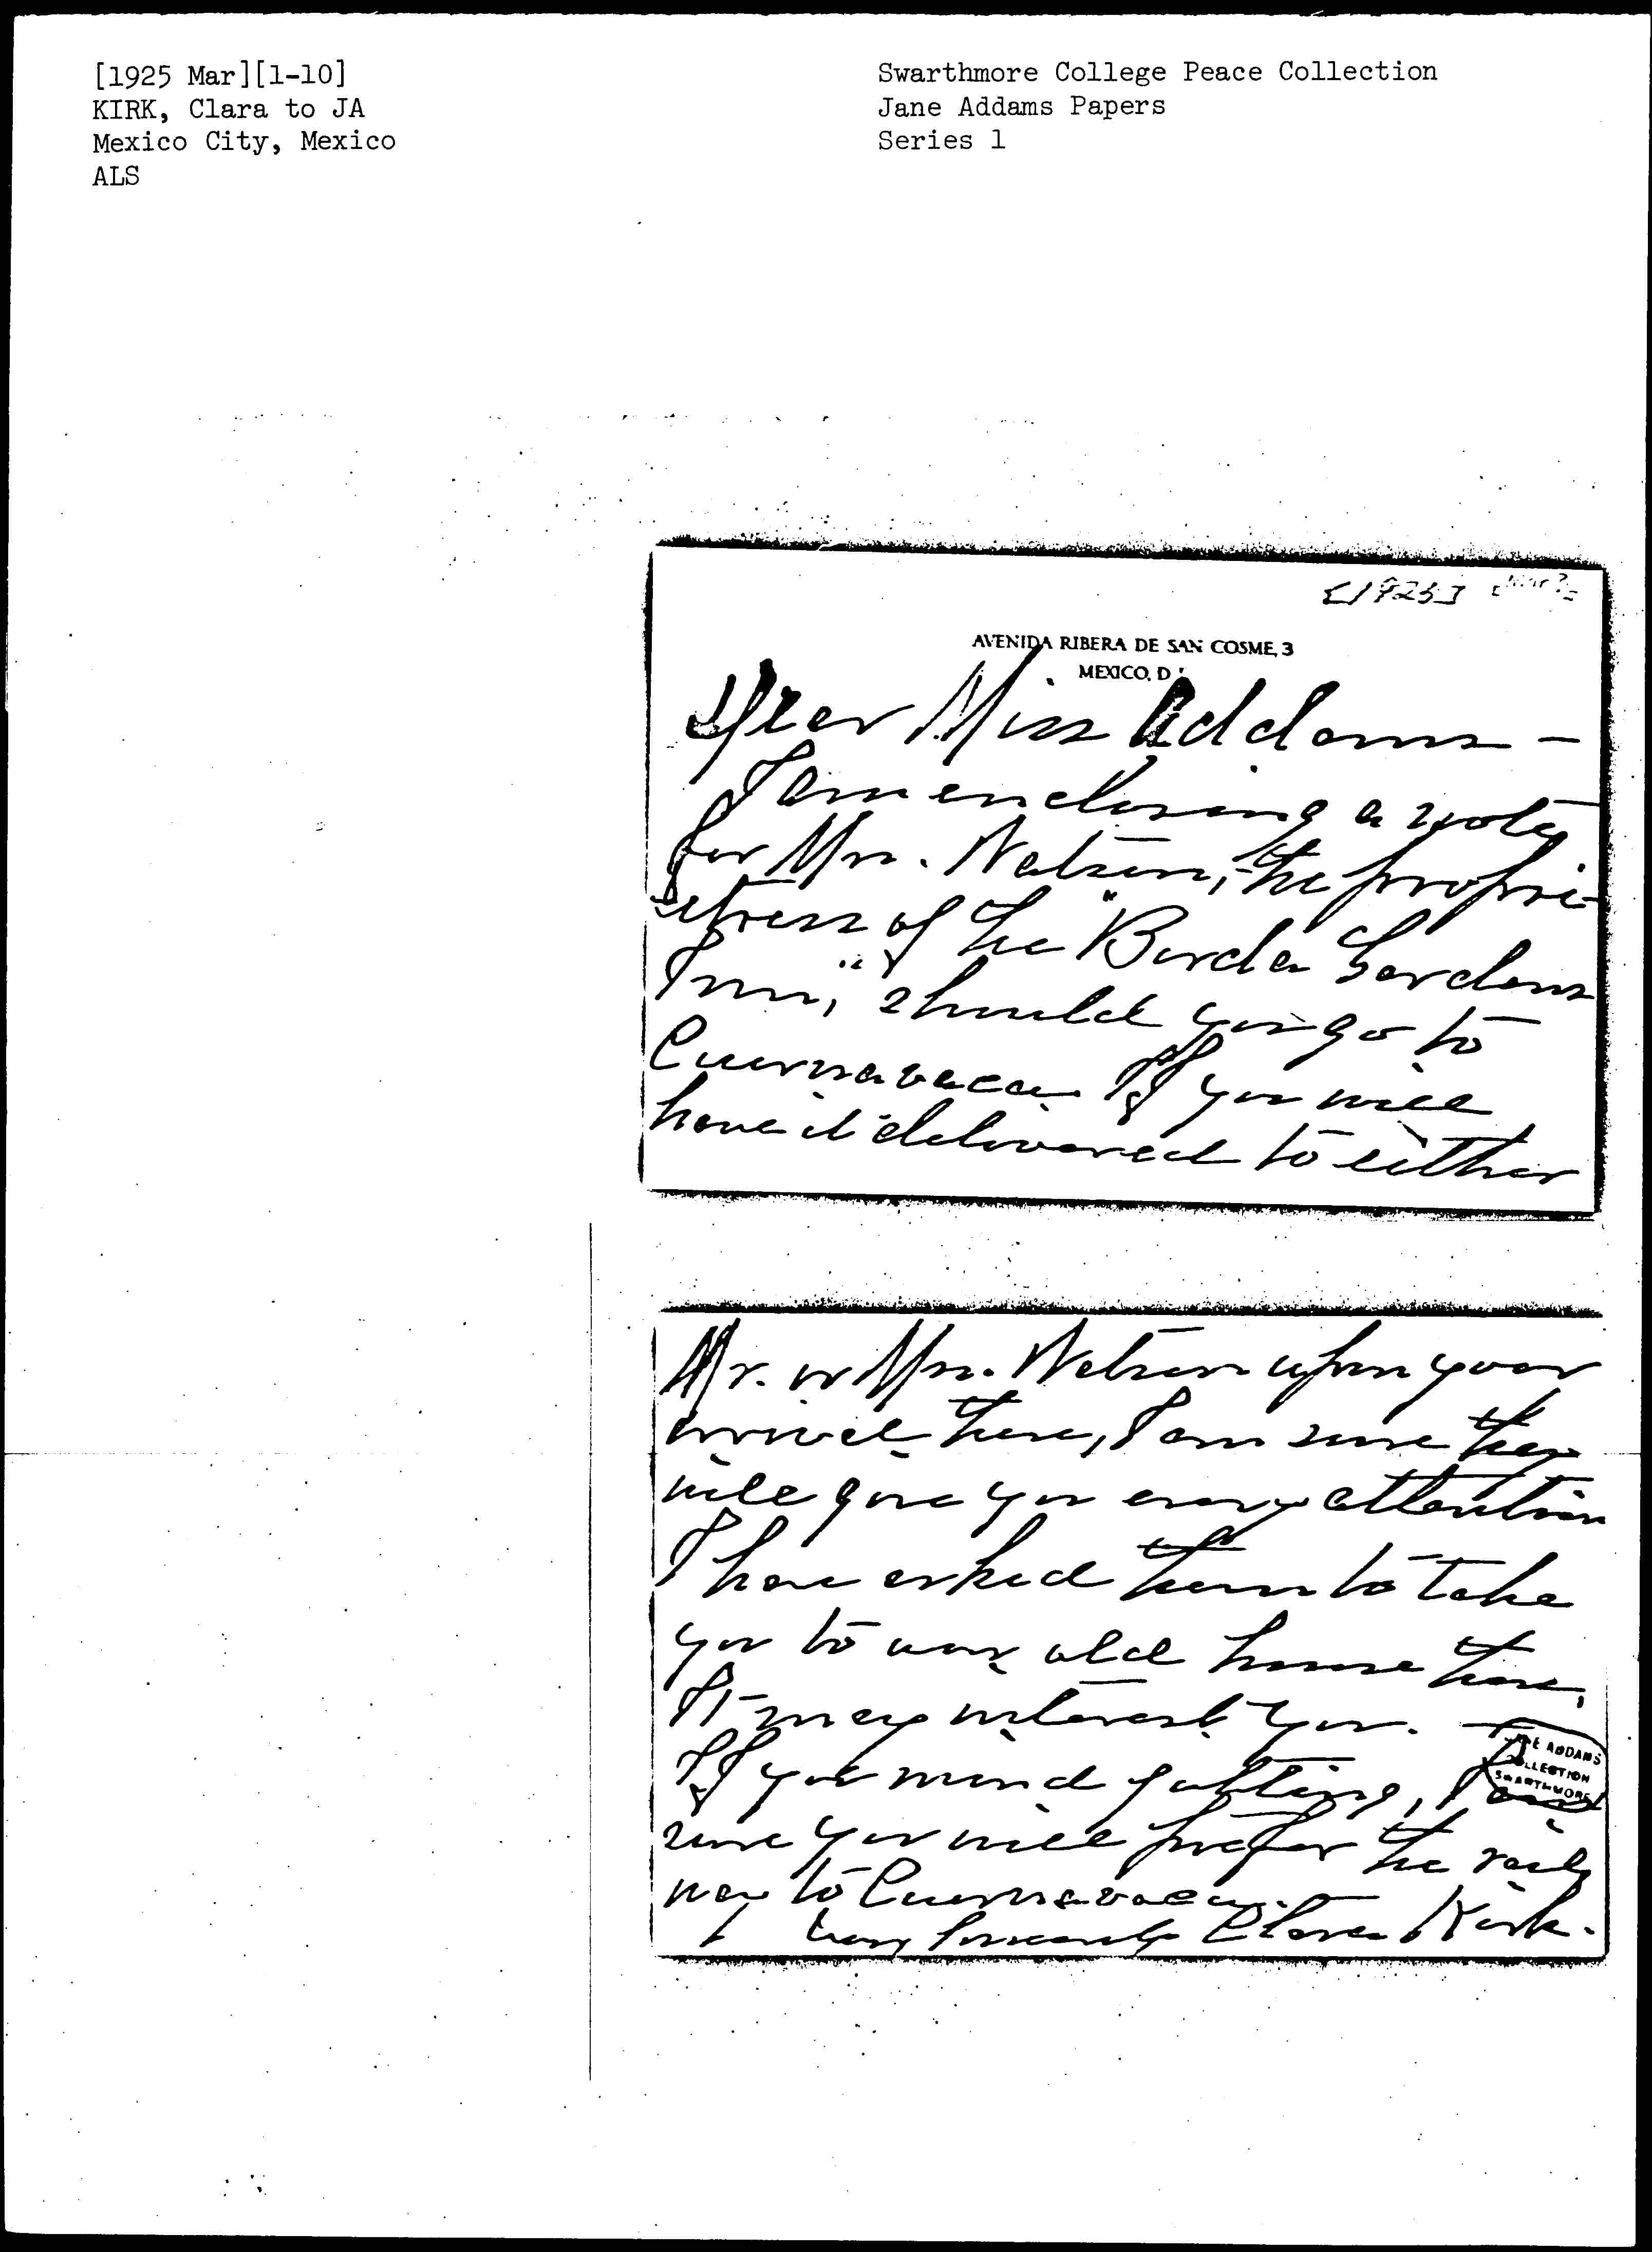 [1925 Mar][1-10]
KIRK, Clara to JA
Mexico City, Mexico
ALS
Swarthmore College Peace Collection
Jane Addams Papers
Series 1
[1925] [Mar?]
AVENIDA RIBERA DE SAN COSME, 3
MEXICO, D
Dear Miss Addams —
I am enclosing a note
for Mrs. Watson, the propri-
etress of the "Borda Gardens
Inn," should you go to
Cuernavaca. If you will
have it delivered to either
Mr. or Mrs. Watson upon your
arrival there, I am sure they
will give you every attention
I have asked them to take
you to our old house there,
It may interest you.
If you mind jolting, I am
sure you will prefer the rail
way to Cuernavaca.
Very sincerely Clara Kirk.
JANE ADDAMS
COLLECTION
SWARTHMORE